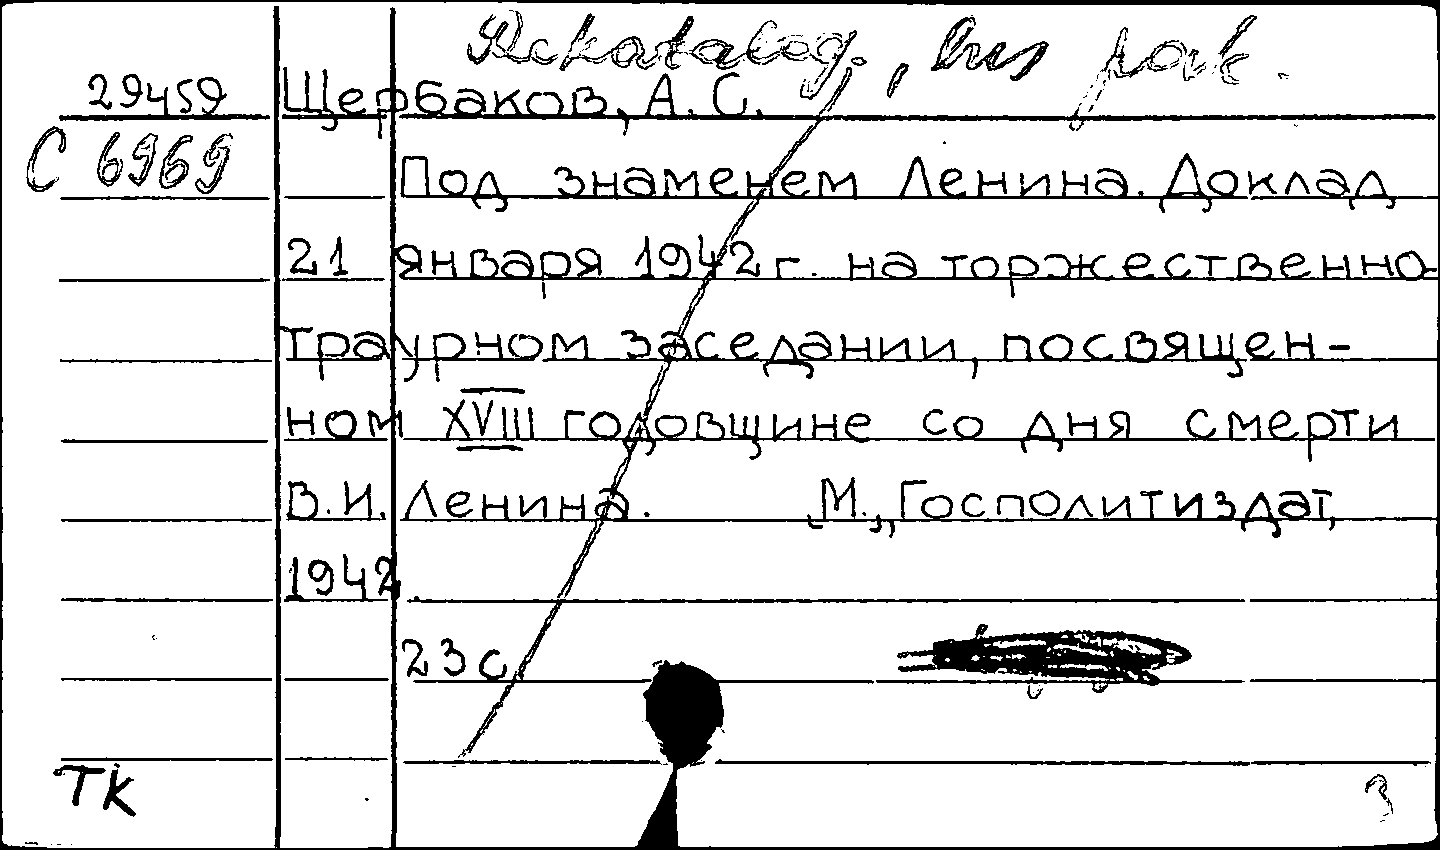 Rekatalog.
29459 Щербаков, А. С.
С 6969
Под знаменем Ленина. Доклад
21 января 1942 г. на торжественно-
траурном заседании, посвящен-
ном XVIII годовщине со дня смерти
В.И. Ленина. М., Госполитиздат,
1942.
23 с
ТК 3